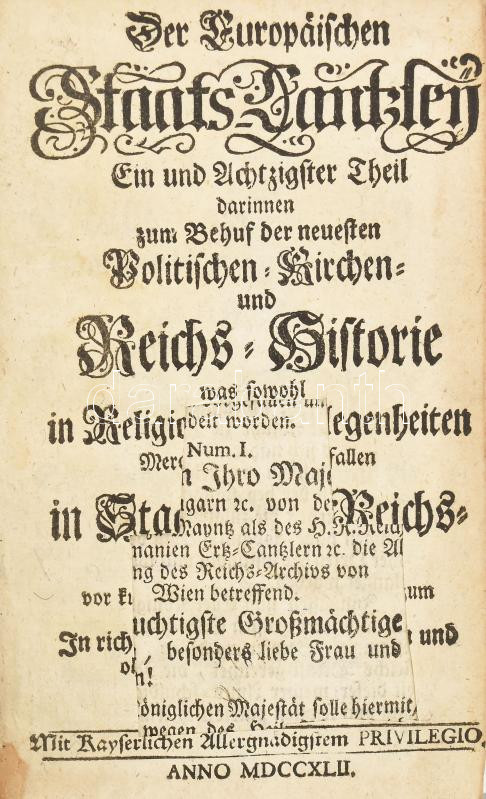 Der Europäischen
Staats-Cantzley
Ein und Achtzigster Theil
darinnen
zum Behuf der neuesten
Politischen-Kirchen-
und
Reichs-Historie
was sowohl
in Religi legenheiten
delt worden.
Num. I.
Mer fallen
Ihro Maj
garn ꝛc. von de
in Sta Reichs-
Mayntz als des H. R. Reich
manien Ertz-Cantzlern ꝛc. die
ng des Reichs-Archivs von
vor Wien betreffend. zum
uchtigste Großmächtige
In rich und
besonders liebe Frau und
öniglichen Majestät solle hiermit,
wegen des
Mit Kayserlichen Allergnädigstem PRIVILEGIO.
ANNO MDCCXLII.